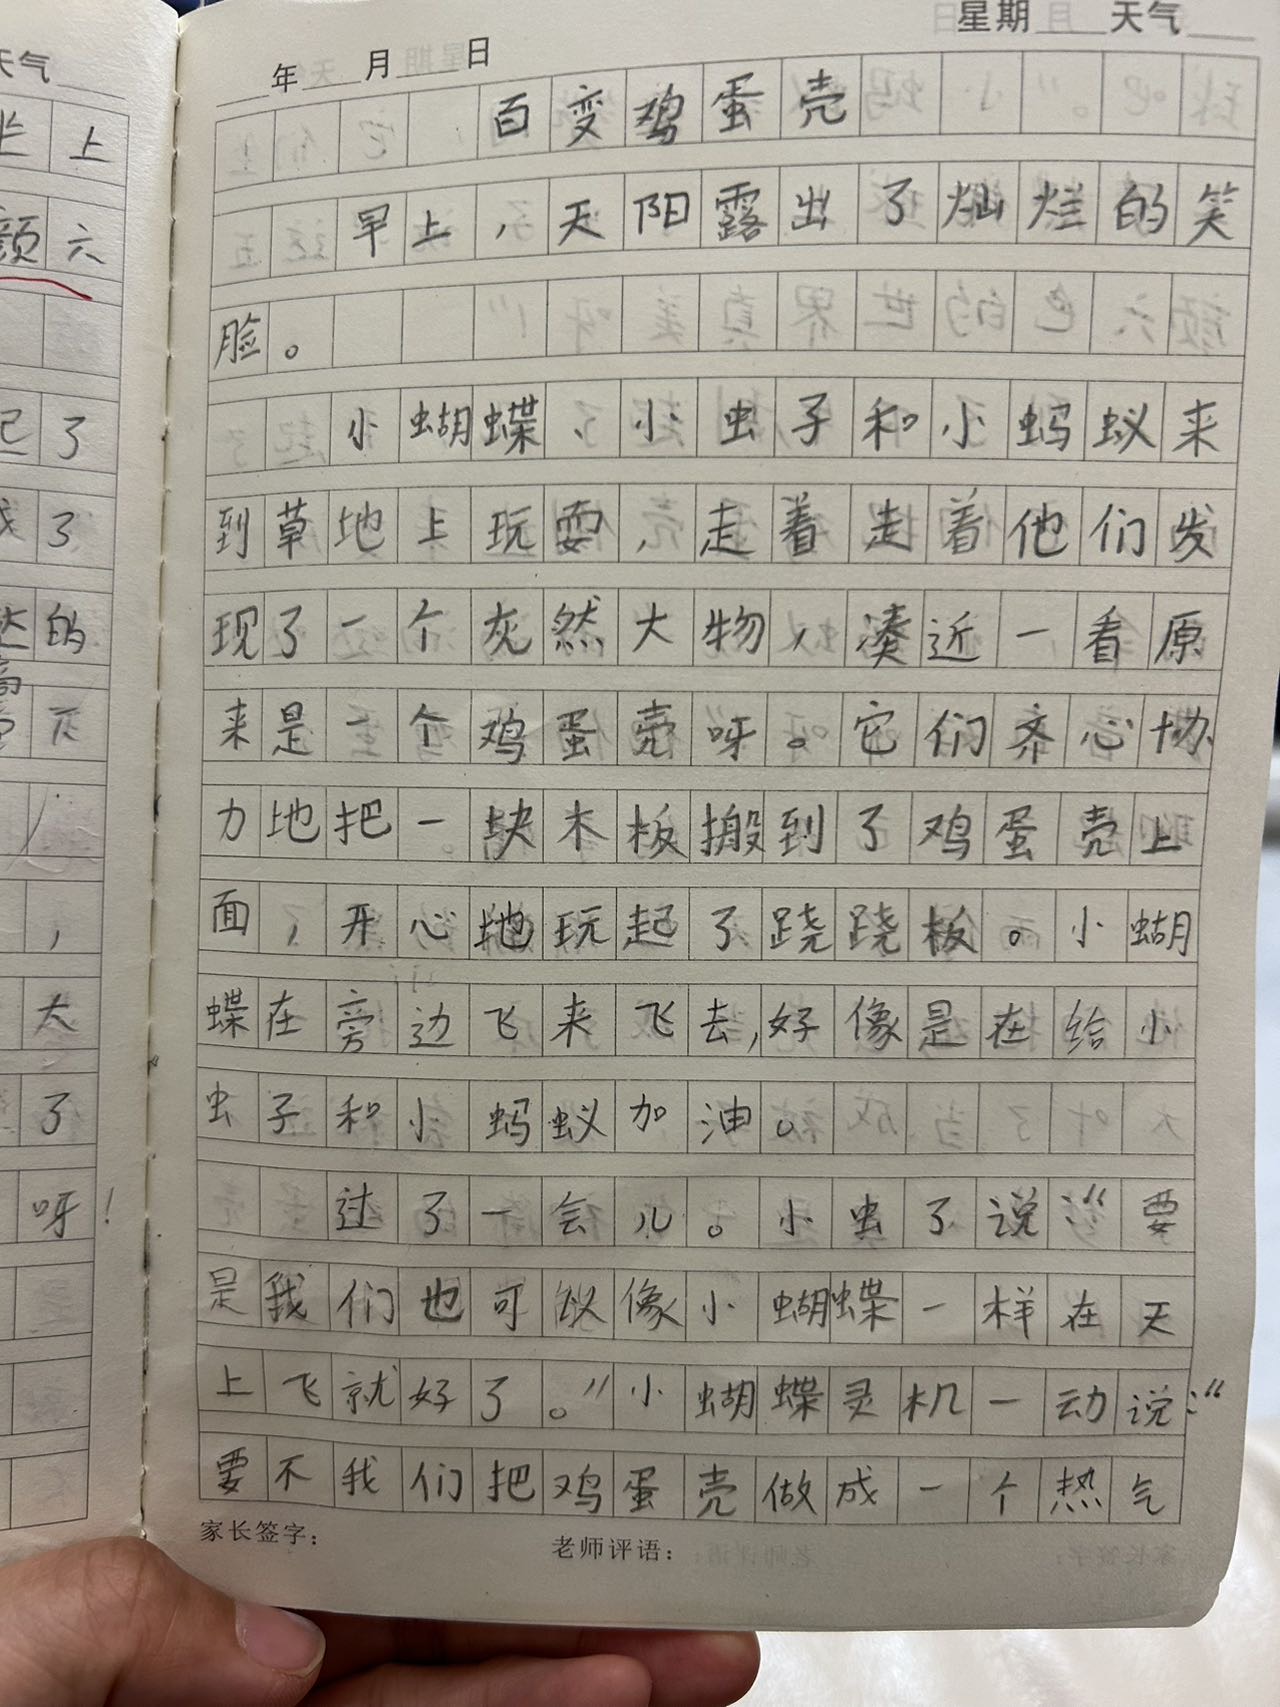 天气
坐上
颜六
起了
了
的
亮
灰
,
大
了
呀!
年 月 日 星期 天气
百变鸡蛋壳
早上,天阳露出了灿烂的笑
脸。
小蝴蝶、小虫子和小蚂蚁来
到草地上玩耍,走着走着他们发
现了一个灰然大物,凑近一看原
来是一个鸡蛋壳呀。它们齐心协
力地把一块木板搬到了鸡蛋壳上
面,开心地玩起了跷跷板。小蝴
蝶在旁边飞来飞去,好像是在给小
虫子和小蚂蚁加油。
过了一会儿。小虫了说:“要
是我们也可以像小蝴蝶一样在天
上飞就好了。”小蝴蝶灵机一动说:“
要不我们把鸡蛋壳做成一个热气
家长签字: 老师评语: